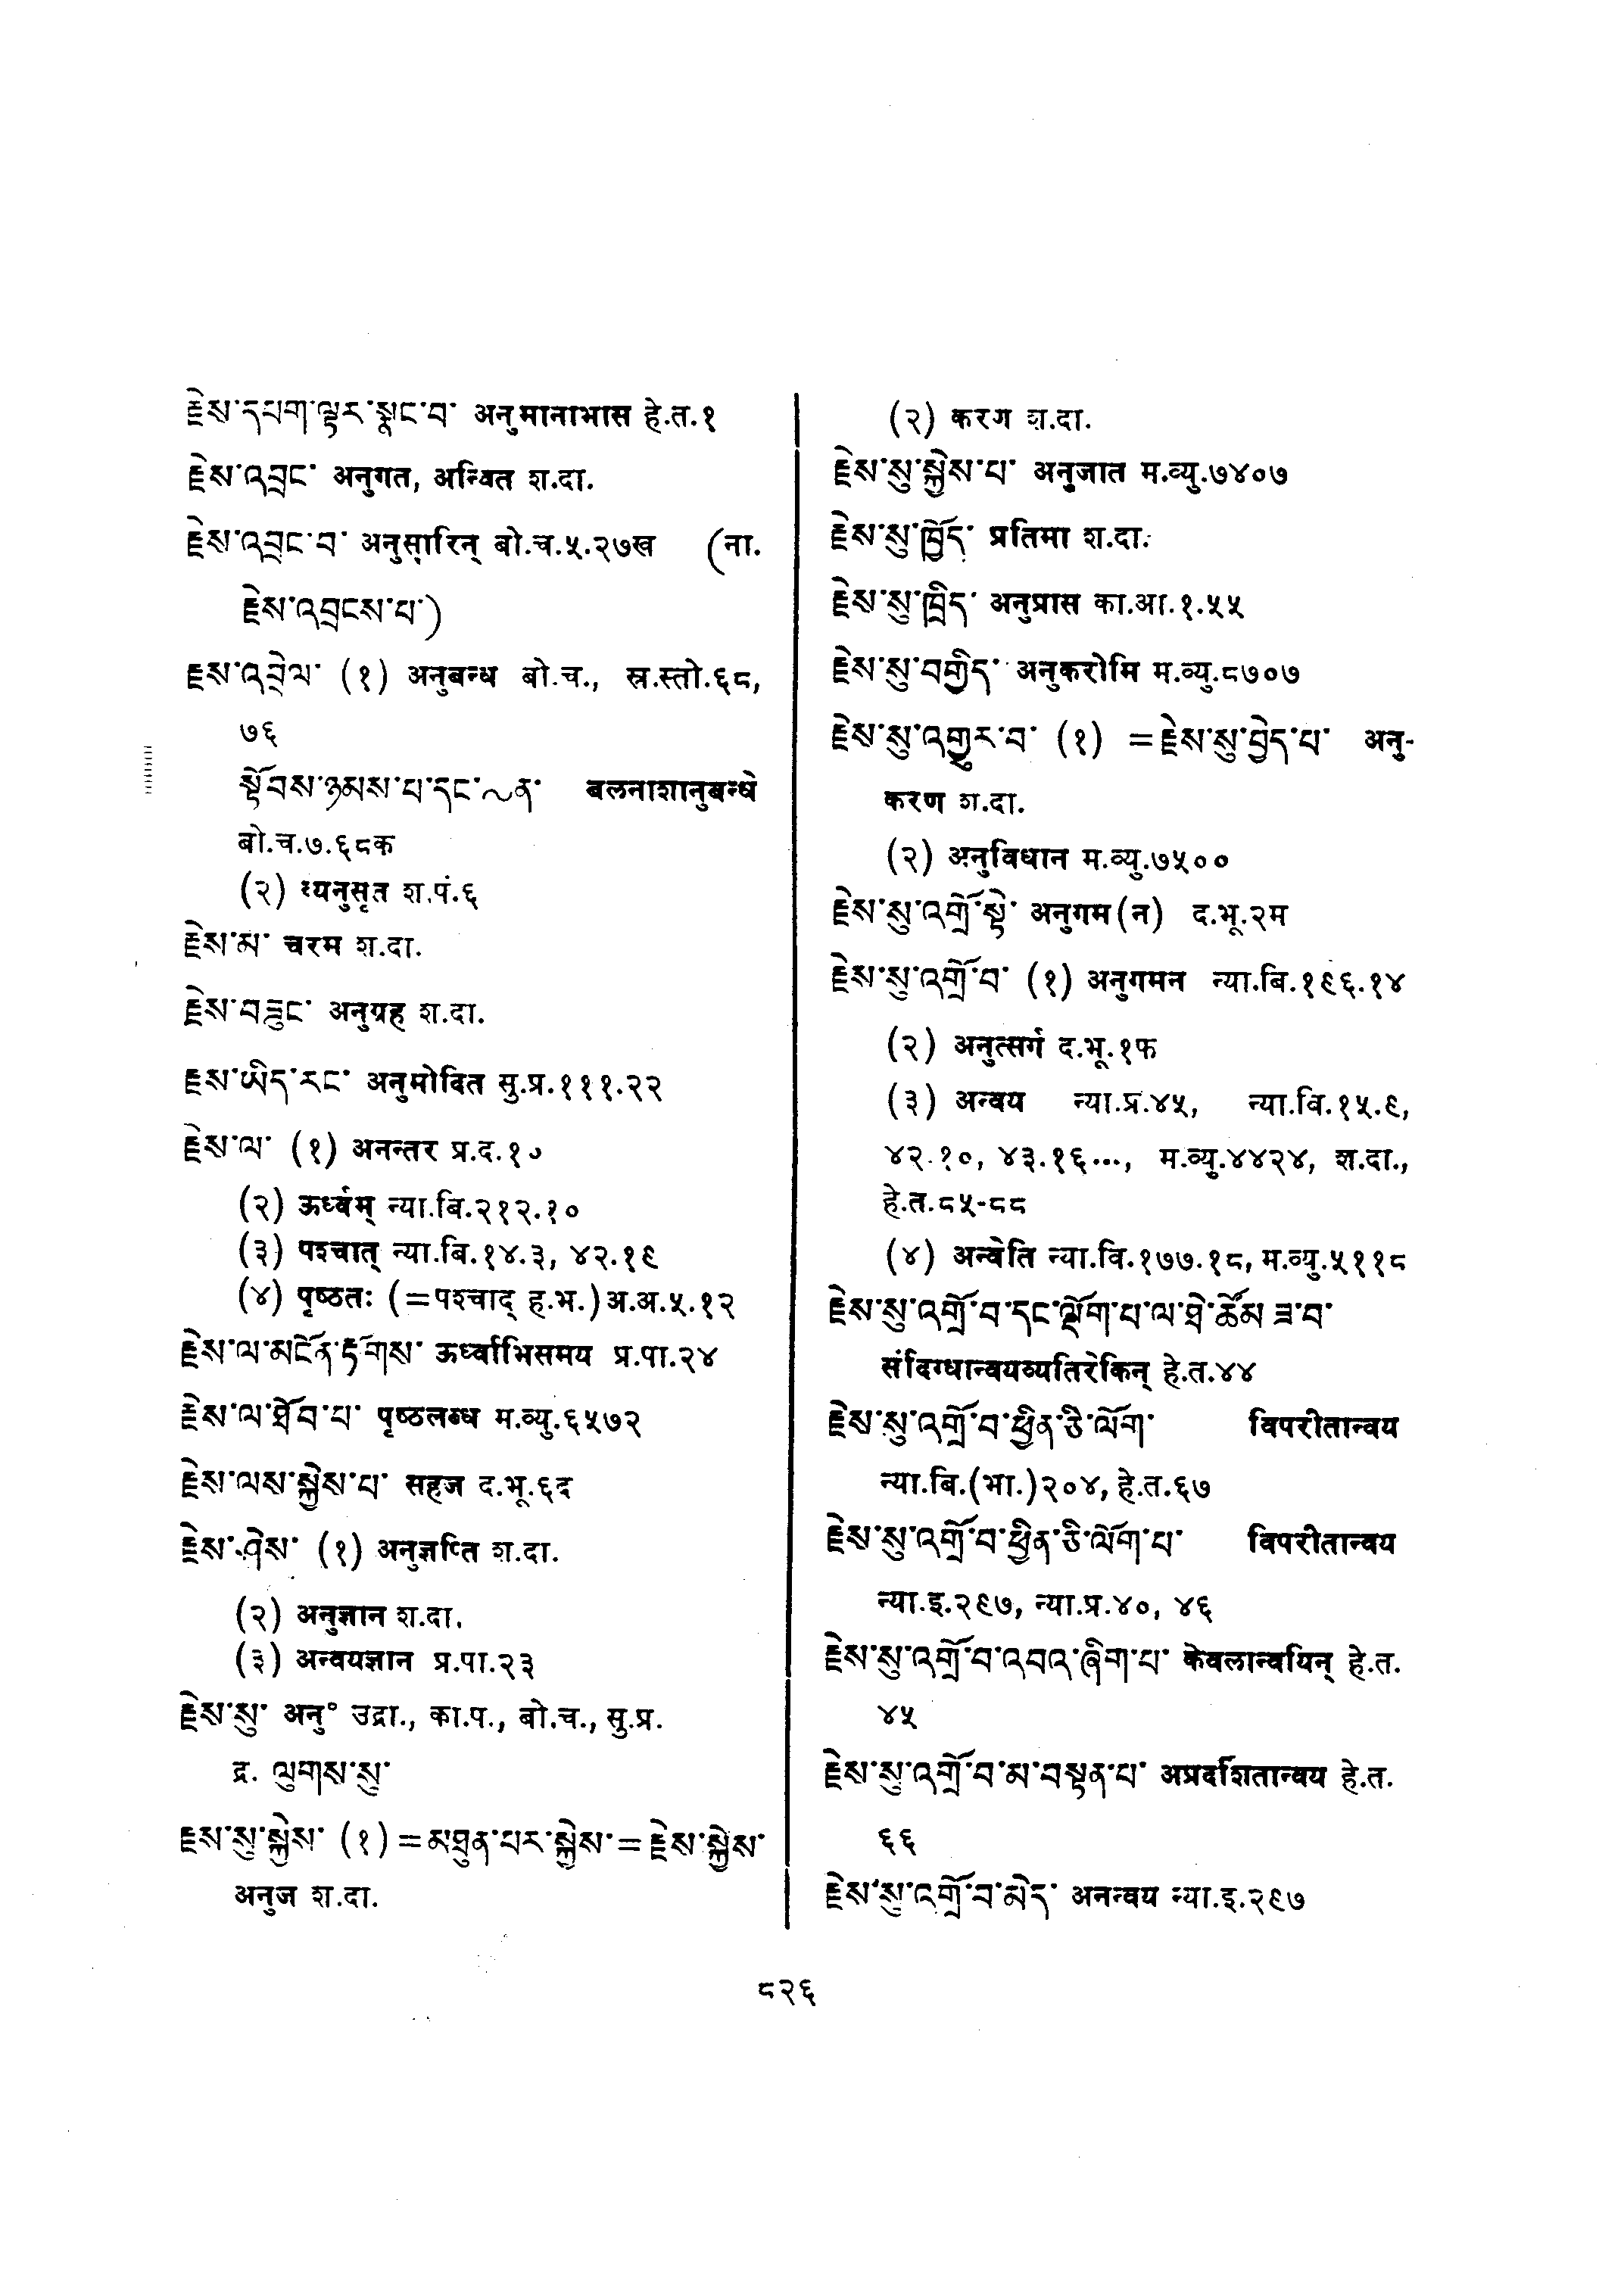 རྗེས་དཔག་ལྟར་སྣང་བ་ अनुमानाभास हे.त.१
རྗེས་འབྲང་ अनुगत, अन्वित श.दा.
རྗེས་འབྲང་བ་ अनुसारिन् बो.च.५.२७ख (ना.
རྗེས་འབྲངས་པ་)
རྗེས་འབྲེལ་ (१) अनुबन्ध बो.च., स्र.स्तो.६८,
७६
སྟོབས་ཉམས་པ་དང་~ན་ बलनाशानुबन्धे
बो.च.७.६८क
(२) व्यनुसृत श.पं.६
རྗེས་མ་ चरम श.दा.
རྗེས་བཟུང་ अनुग्रह श.दा.
རྗེས་ཡིད་རང་ अनुमोदित सु.प्र.१११.२२
རྗེས་ལ་ (१) अनन्तर प्र.द.१०
(२) ऊर्ध्वम् न्या.बि.२१२.१०
(३) पश्चात् न्या.बि.१४.३, ४२.१९
(४) पृष्ठतः (=पश्चाद् ह.भ.) अ.अ.५.१२
རྗེས་ལ་མངོན་རྟོགས་ ऊर्ध्वाभिसमय प्र.पा.२४
རྗེས་ལ་ཐོབ་པ་ पृष्ठलब्ध म.व्यु.६५७२
རྗེས་ལས་སྐྱེས་པ་ सहज द.भू.६द
རྗེས་ཤེས་ (१) अनुज्ञप्ति श.दा.
(२) अनुज्ञान श.दा.
(३) अन्वयज्ञान प्र.पा.२३
རྗེས་སུ་ अनु° उद्रा., का.प., बो.च., सु.प्र.
द्र. ལུགས་སུ་
རྗེས་སུ་སྐྱེས་ (१) =མཐུན་པར་སྐྱེས་=རྗེས་སྐྱེས་
अनुज श.दा.
(२) करग श.दा.
རྗེས་སུ་སྐྱེས་པ་ अनुजात म.व्यु.७४०७
རྗེས་སུ་ཁྱོད་ प्रतिमा श.दा.
རྗེས་སུ་ཁྲིད་ अनुप्रास का.आ.१.५५
རྗེས་སུ་བགྱིད་ अनुकरोमि म.व्यु.८७०७
རྗེས་སུ་འགྱུར་བ་ (१) =རྗེས་སུ་བྱེད་པ་ अनु-
करण श.दा.
(२) अनुविधान म.व्यु.७५००
རྗེས་སུ་འགྲོ་སྟེ་ अनुगम(न) द.भू.२म
རྗེས་སུ་འགྲོ་བ་ (१) अनुगमन न्या.बि.१९६.१४
(२) अनुत्सर्ग द.भू.१फ
(३) अन्वय न्या.प्र.४५, न्या.बि.१५.९,
४२.१०, ४३.१६..., म.व्यु.४४२४, श.दा.,
हे.त.८५-८८
(४) अन्वेति न्या.बि.१७७.१८, म.व्यु.५११८
རྗེས་སུ་འགྲོ་བ་དང་ལྡོག་པ་ལ་ཐེ་ཚོམ ཟ་བ་
संदिग्धान्वयव्यतिरेकिन् हे.त.४४
རྗེས་སུ་འགྲོ་བ་ཕྱིན་ཅི་ལོག་ विपरीतान्वय
न्या.बि.(भा.)२०४, हे.त.६७
རྗེས་སུ་འགྲོ་བ་ཕྱིན་ཅི་ལོག་པ་ विपरीतान्वय
न्या.इ.२९७, न्या.प्र.४०, ४६
རྗེས་སུ་འགྲོ་བ་འབའ་ཞིག་པ་ केवलान्वयिन् हे.त.
४५
རྗེས་སུ་འགྲོ་བ་མ་བསྟན་པ་ अप्रदर्शितान्वय हे.त.
६६
རྗེས་སུ་འགྲོ་བ་མེད་ अनन्वय न्या.इ.२९७
८२६